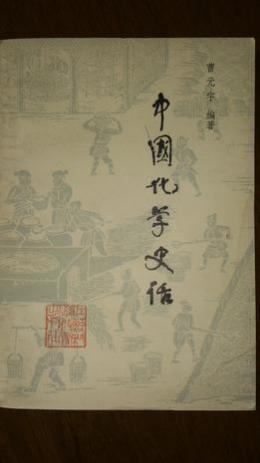 曹元宇 编著
中國化学史话